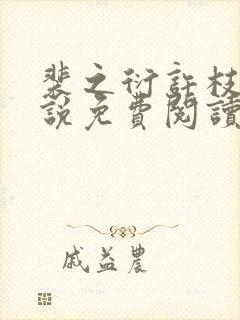 裴之衍許枝
說免費閱讀
戚益農